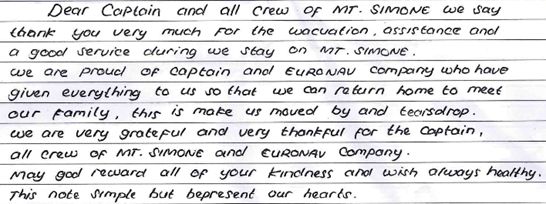 Dear Captain and all crew of MT. SIMONE we say
thank you very much for the wacuation, assistance and
a good service during we stay on MT. SIMONE.
we are proud of captain and EURONAV company who have
given everything to us so that we can return home to meet
our family, this is make us moved by and tearsdrop.
we are very grateful and very thankful for the captain,
all crew of MT. SIMONE and EURONAV Company.
May god reward all of your kindness and wish always healthy.
This note simple but bepresent our hearts.